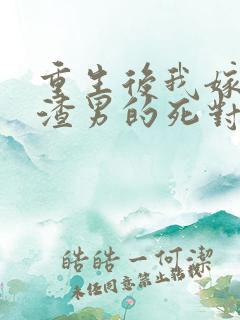 重生後我嫁
渣男的死對
皓皓一何潔
未经同意禁止转载